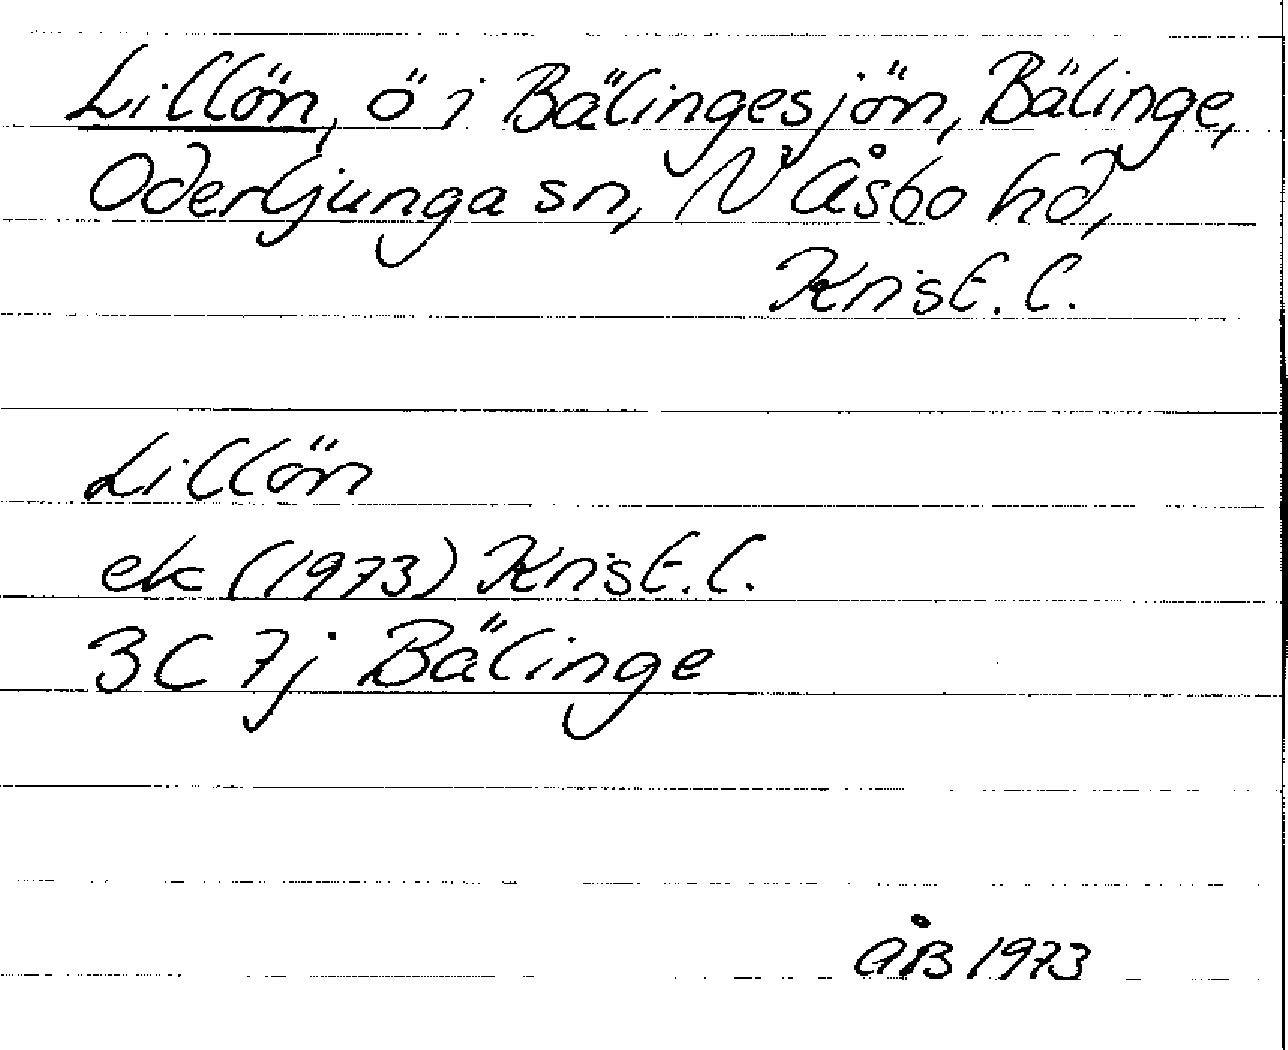 Lillön, ö i Bälingesjön, Bälinge,
Oderljunga sn, N Åsbo hd,
Krist. l.
Lillön
ek (1973) Krist. l.
3C 7j Bälinge
ÅB 1973